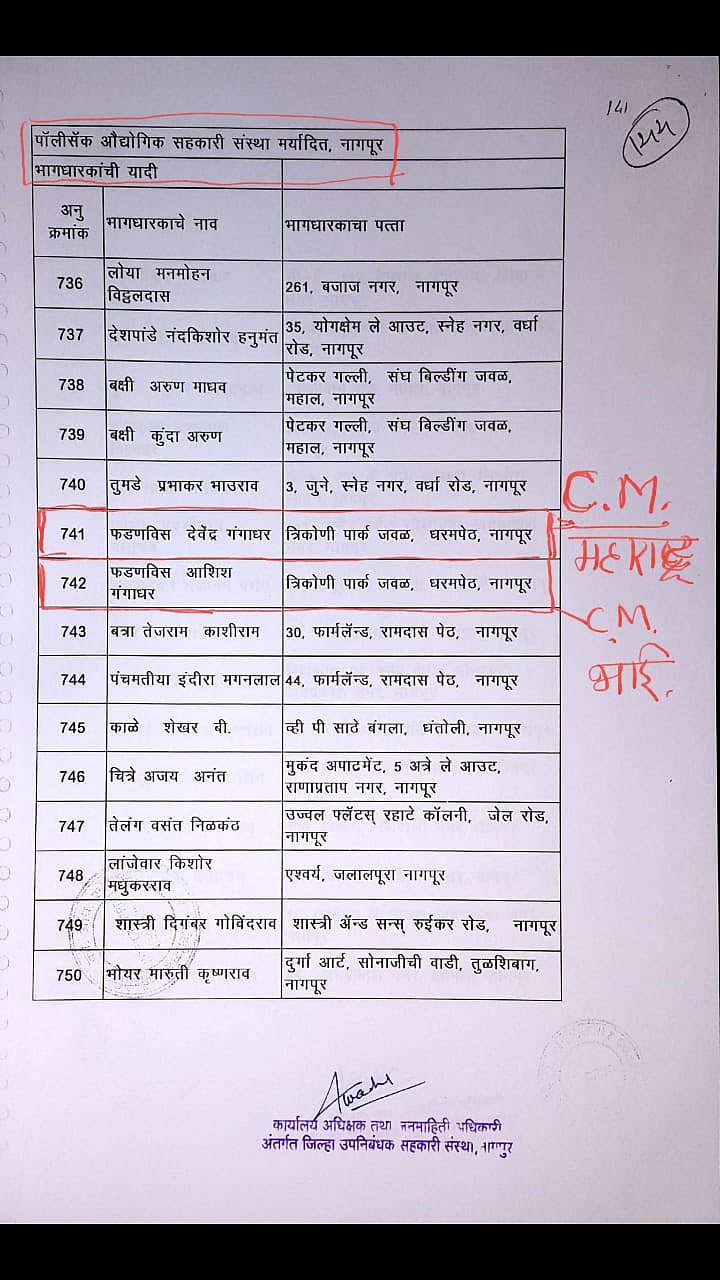 141
144
पॉलीसॅक औद्योगिक सहकारी संस्था मर्यादित, नागपूर
भागधारकांची यादी
अनु क्रमांक भागधारकाचे नाव भागधारकाचा पत्ता
736 लोया मनमोहन विठ्ठलदास 261, बजाज नगर, नागपूर
737 देशपांडे नंदकिशोर हनुमंत 35, योगक्षेम ले आउट, स्नेह नगर, वर्धा रोड, नागपूर
738 बक्षी अरुण माधव पेटकर गल्ली, संघ बिल्डींग जवळ, महाल, नागपूर
739 बक्षी कुंदा अरुण पेटकर गल्ली, संघ बिल्डींग जवळ, महाल, नागपूर
740 तुमडे प्रभाकर भाउराव 3, जुने, स्नेह नगर, वर्धा रोड, नागपूर
741 फडणविस देवेंद्र गंगाधर त्रिकोणी पार्क जवळ, धरमपेठ, नागपूर
742 फडणविस आशिश गंगाधर त्रिकोणी पार्क जवळ, धरमपेठ, नागपूर
743 बत्रा तेजराम काशीराम 30, फार्मलॅन्ड, रामदास पेठ, नागपूर
744 पंचमतीया इंदीरा मगनलाल 44, फार्मलॅन्ड, रामदास पेठ, नागपूर
745 काळे शेखर बी. व्ही पी साटे बंगला, धंतोली, नागपूर
746 चित्रे अजय अनंत मुकंद अपाटमेंट, 5 अत्रे ले आउट, राणाप्रताप नगर, नागपूर
747 तेलंग वसंत निळकंठ उज्वल फ्लॅटस् रहाटे कॉलनी, जेल रोड, नागपूर
748 लांजेवार किशोर मधुकरराव एश्वर्य, जलालपूरा नागपूर
749 शास्त्री दिगंबर गोविंदराव शास्त्री ॲन्ड सन्स् रुईकर रोड, नागपूर
750 भोयर मारुती कृष्णराव दुर्गा आर्ट, सोनाजीची वाडी, तुळशिबाग, नागपूर
C.M.
महाराष्ट्र
C.M.
भाई.
कार्यालय अधिक्षक तथा जनमाहिती अधिकारी
अंतर्गत जिल्हा उपनिबंधक सहकारी संस्था, नागपुर